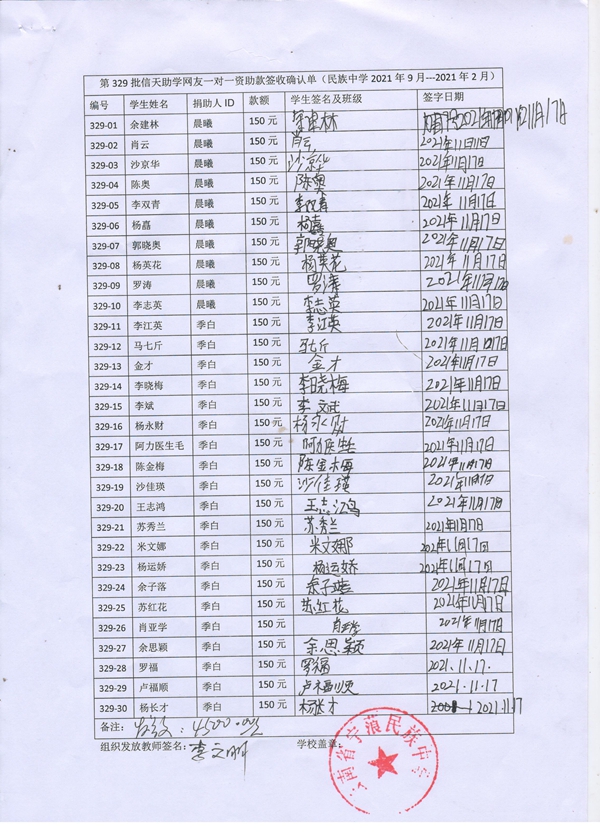 第 329 批信天助学网友一对一资助款签收确认单（民族中学 2021 年 9 月---2021 年 2 月）
编号 学生姓名 捐助人 ID 款额 学生签名及班级 签字日期
329-01 余建林 晨曦 150 元 余建林 11月17日
329-02 肖云 晨曦 150 元 肖云 2021年11月11日
329-03 沙京华 晨曦 150 元 沙京华 2021年11月17日
329-04 陈奥 晨曦 150 元 陈奥 2021年11月17日
329-05 李双青 晨曦 150 元 李双青 2021年11月17日
329-06 杨嘉 晨曦 150 元 杨嘉 2021年11月17日
329-07 郭晓奥 晨曦 150 元 郭晓奥 2021年11月17日
329-08 杨英花 晨曦 150 元 杨英花 2021年11月17日
329-09 罗涛 晨曦 150 元 罗涛 2021年11月17日
329-10 李志英 晨曦 150 元 李志英 2021年11月17日
329-11 李江英 季白 150 元 李江英 2021年11月17日
329-12 马七斤 季白 150 元 马七斤 2021年11月17日
329-13 金才 季白 150 元 金才 2021年11月17日
329-14 李晓梅 季白 150 元 李晓梅 2021年11月17日
329-15 李斌 季白 150 元 李斌 2021年11月17日
329-16 杨永财 季白 150 元 杨永财 2021年11月17日
329-17 阿力医生毛 季白 150 元 阿力医生毛 2021年11月17日
329-18 陈金梅 季白 150 元 陈金梅 2021年11月17日
329-19 沙佳瑛 季白 150 元 沙佳瑛 2021年11月17日
329-20 王志鸿 季白 150 元 王志鸿 2021年11月17日
329-21 苏秀兰 季白 150 元 苏秀兰 2021年11月17日
329-22 米文娜 季白 150 元 米文娜 2021年11月17日
329-23 杨运娇 季白 150 元 杨运娇 2021年11月17日
329-24 余子落 季白 150 元 余子落 2021年11月17日
329-25 苏红花 季白 150 元 苏红花 2021年11月17日
329-26 肖亚学 季白 150 元 肖亚学 2021年11月17日
329-27 余思颖 季白 150 元 余思颖 2021年11月17日
329-28 罗福 季白 150 元 罗福 2021.11.17.
329-29 卢福顺 季白 150 元 卢福顺 2021.11.17
329-30 杨长才 季白 150 元 杨长才 2021.11.17
备注： 发放：4500.00元
组织发放教师签名：李文明 学校盖章：
云南省宁蒗民族中学